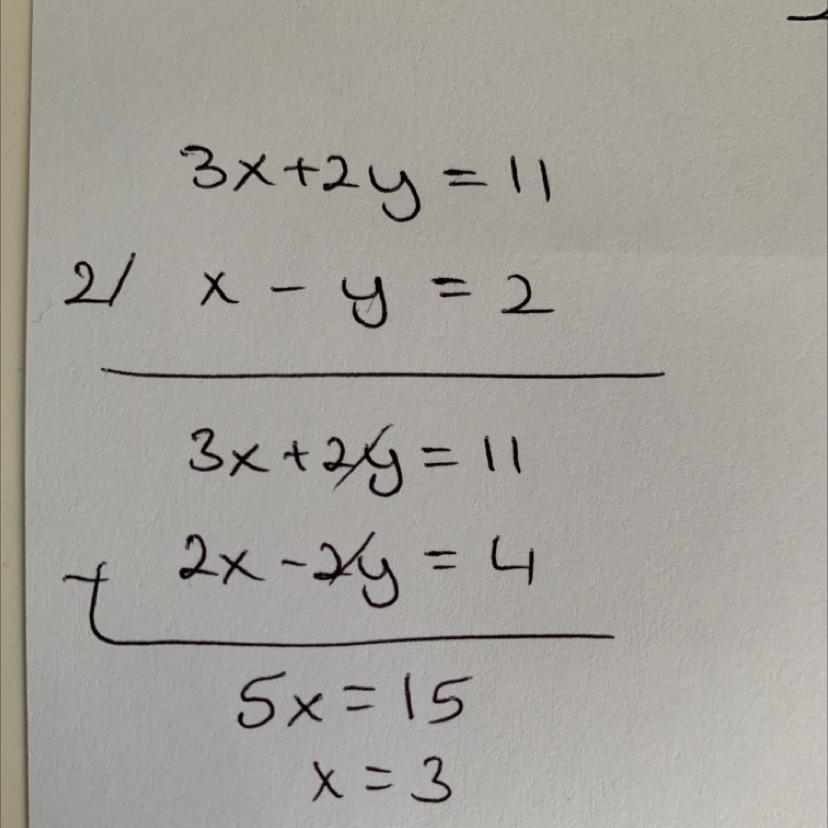 3x+2y=11
2/ x-y=2
3x+2y=11
+ 2x-2y=4
5x=15
x=3